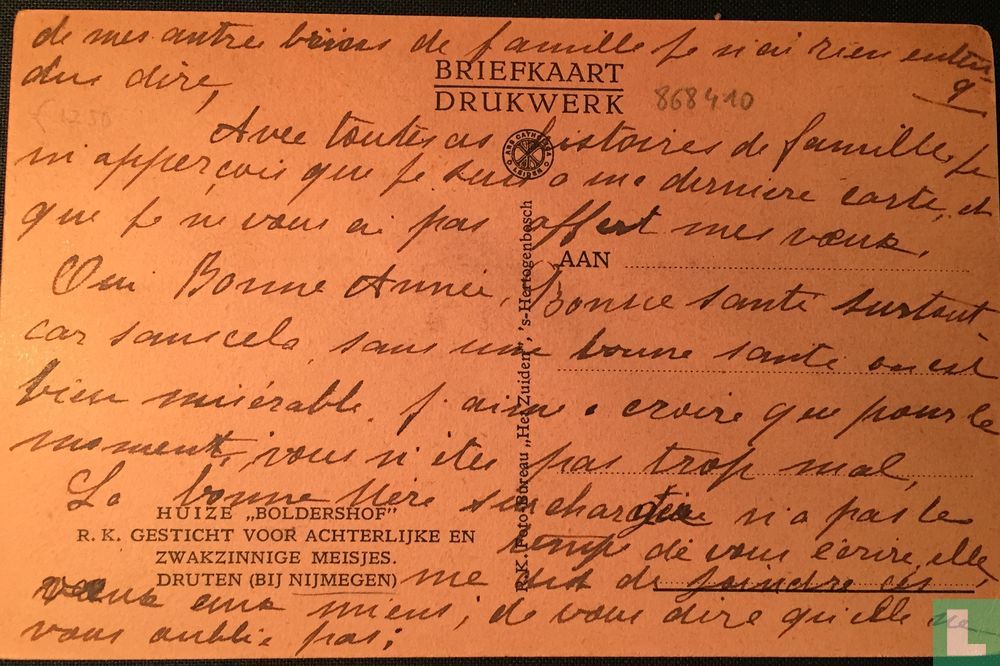 de mes antre biens de famille je n'ai rien enten
dus dire,
9
BRIEFKAART
DRUKWERK
868410
Avec toutes ces histoires de famille, je
m'apperçois que je suis a ma derniere carte, et
que je ne vous ai pas offert mes vœux.
ABS CATHEDRA LEIDEN
AAN
Oui Bonne Année, Bonne santé surtout
car sans cela, sans une bonne santé on est
bien misérable, j'aime a croire que pour le
moment, vous n'êtes pas trop mal,
La bonne Mère surchargée n'a pas le
temps de vous écrire, elle
me dit de joindre ces
vœux aux miens; de vous dire qu'elle ne
vous oublie pas;
HUIZE „BOLDERSHOF"
R. K. GESTICHT VOOR ACHTERLIJKE EN
ZWAKZINNIGE MEISJES.
DRUTEN (BIJ NIJMEGEN)
R.K. Foto-Bureau „Het Zuiden", 's-Hertogenbosch
L